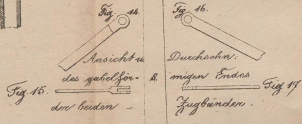 Fig 14.
Fig 16.
Ansicht u. Durchschn.
des gabelför- migen Endes
Fig 15.
Fig 17
der beiden Zugbänder.